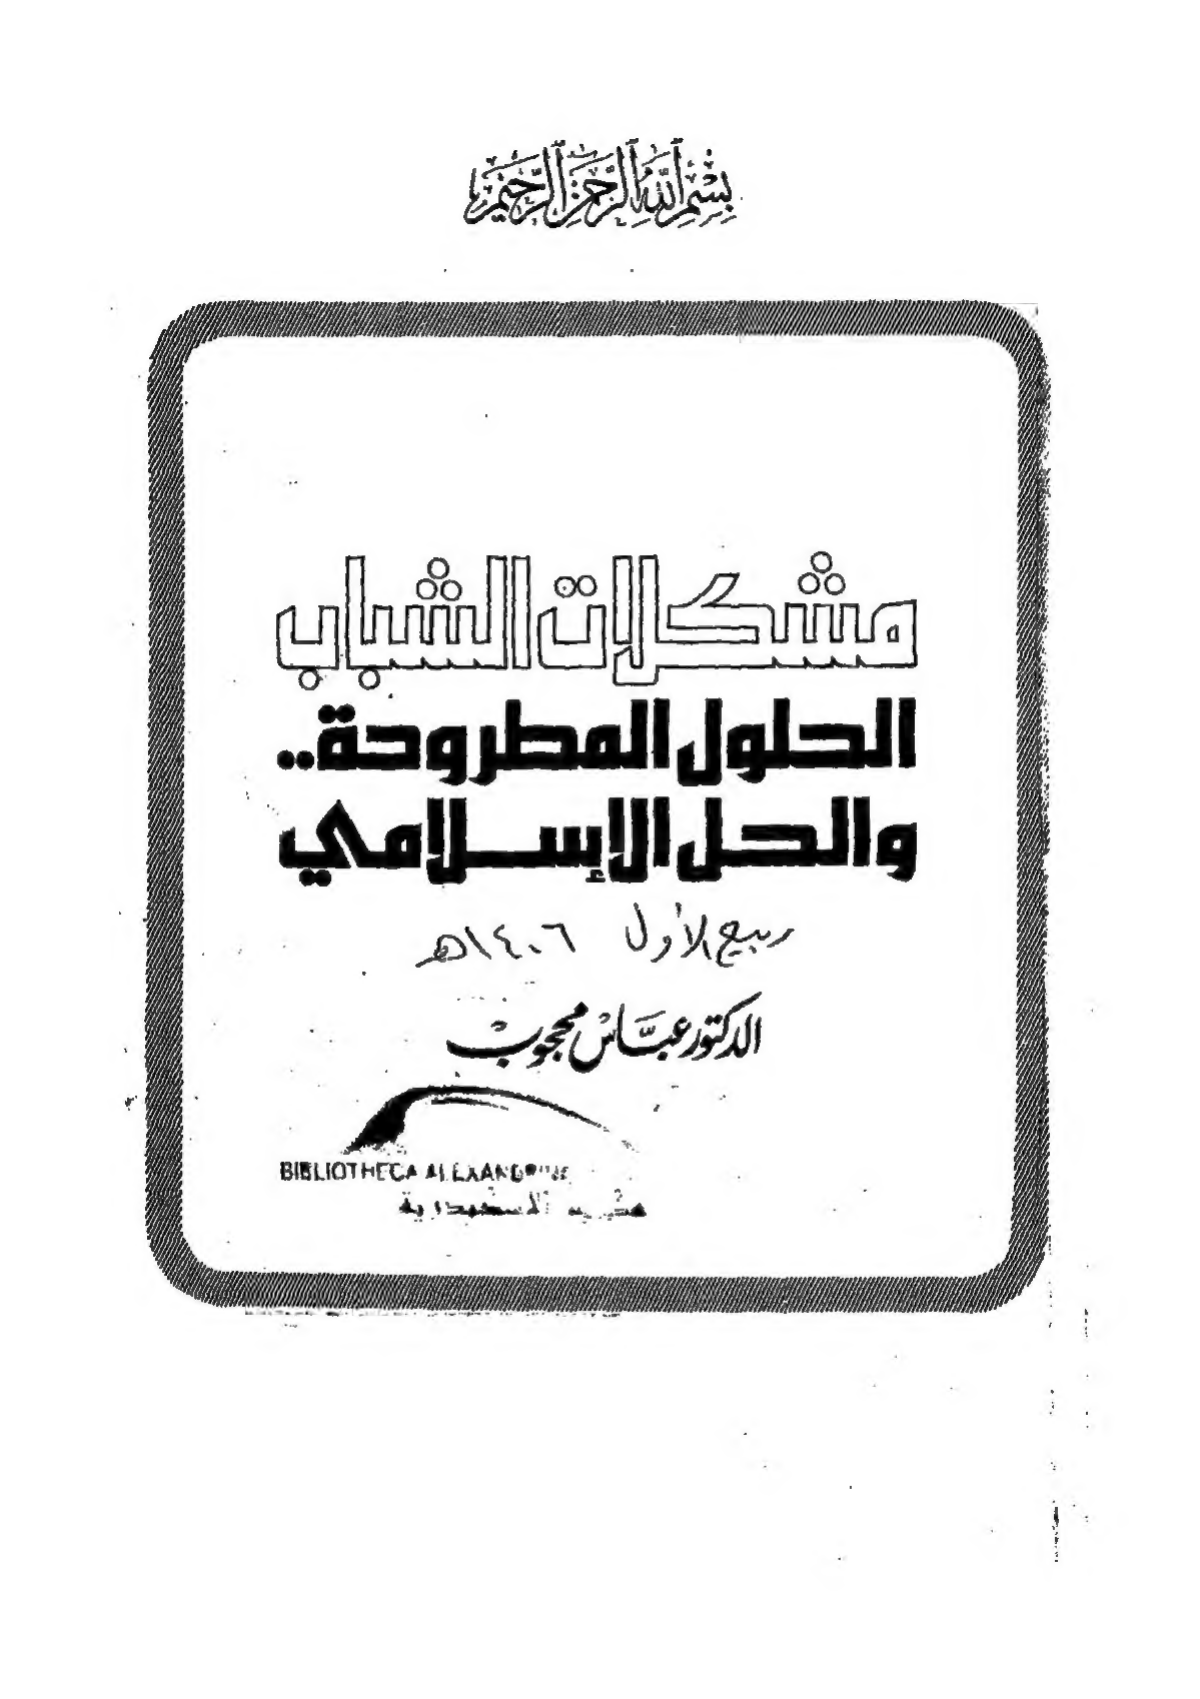 بِسْمِ اللَّهِ الرَّحْمَنِ الرَّحِيمِ
مشكلات الشباب
الحلول المطروحة..
والحل الإسلامي
ربيع الأول ١٤٠٦هـ
الدكتور عبَّاس محجوب
BIBLIOTHECA ALEXANDRINA
مكتبة الاسكندرية